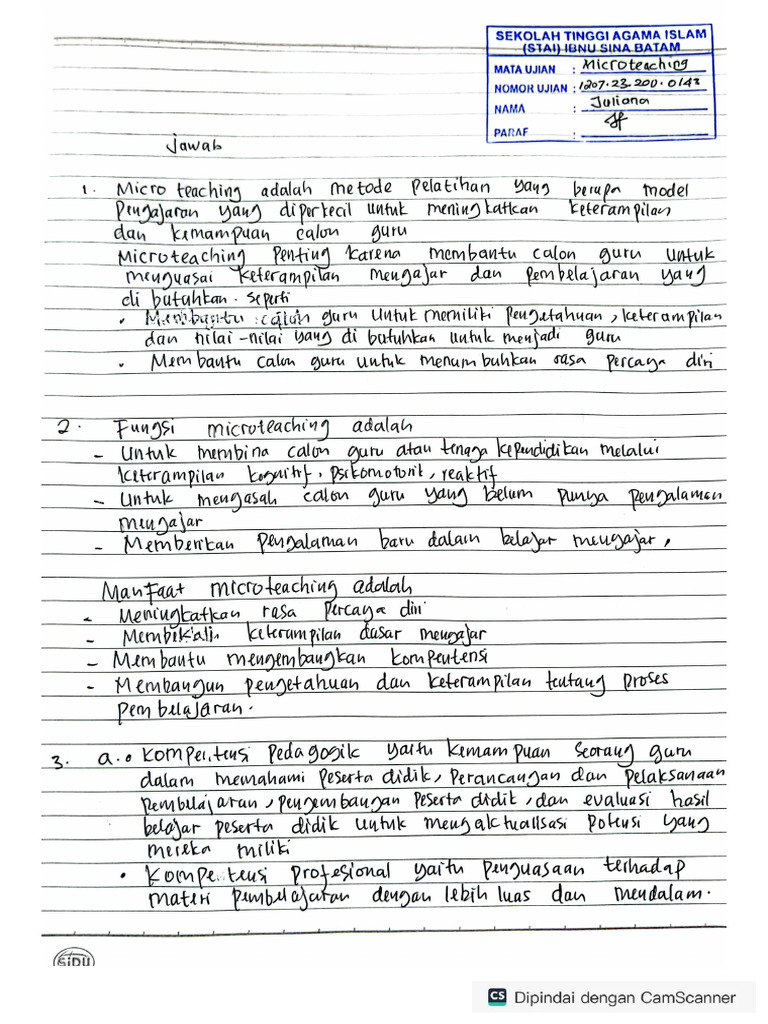 SEKOLAH TINGGI AGAMA ISLAM
(STAI) IBNU SINA BATAM
MATA UJIAN : Microteaching
NOMOR UJIAN : 1207.23.200.0142
NAMA : Juliana
PARAF :
Jawab
1. Micro teaching adalah metode pelatihan yang berupa model
Pengajaran yang diperkecil untuk meningkatkan keterampilan
dan kemampuan calon guru
Microteaching Penting karena membantu calon guru untuk
menguasai keterampilan mengajar dan pembelajaran yang
di butuhkan. seperti
• Membantu calon guru untuk memiliki pengetahuan, keterampilan
dan nilai-nilai yang di butuhkan untuk menjadi guru
• Membantu calon guru untuk menumbuhkan rasa percaya diri
2. Fungsi microteaching adalah
- Untuk membina calon guru atau tenaga kependidikan melalui
keterampilan kognitif, psikomotorik, reaktif
- Untuk mengasah calon guru yang belum punya pengalaman
mengajar
- Memberikan pengalaman baru dalam belajar mengajar,
Manfaat microteaching adalah
- Meningkatkan rasa percaya diri
- Membikali keterampilan dasar mengajar
- Membantu mengembangkan kompentensi
- Membangun pengetahuan dan keterampilan tentang proses
pembelajaran.
3. a. • Kompentensi Pedagogik yaitu kemampuan seorang guru
dalam memahami peserta didik, perancangan dan pelaksanaan
pembelajaran, pengembangan peserta didik, dan evaluasi hasil
belajar peserta didik untuk mengaktualisasi potensi yang
mereka miliki
• Kompetensi profesional yaitu penguasaan terhadap
materi pembelajaran dengan lebih luas dan mendalam.
SiDU
CS Dipindai dengan CamScanner